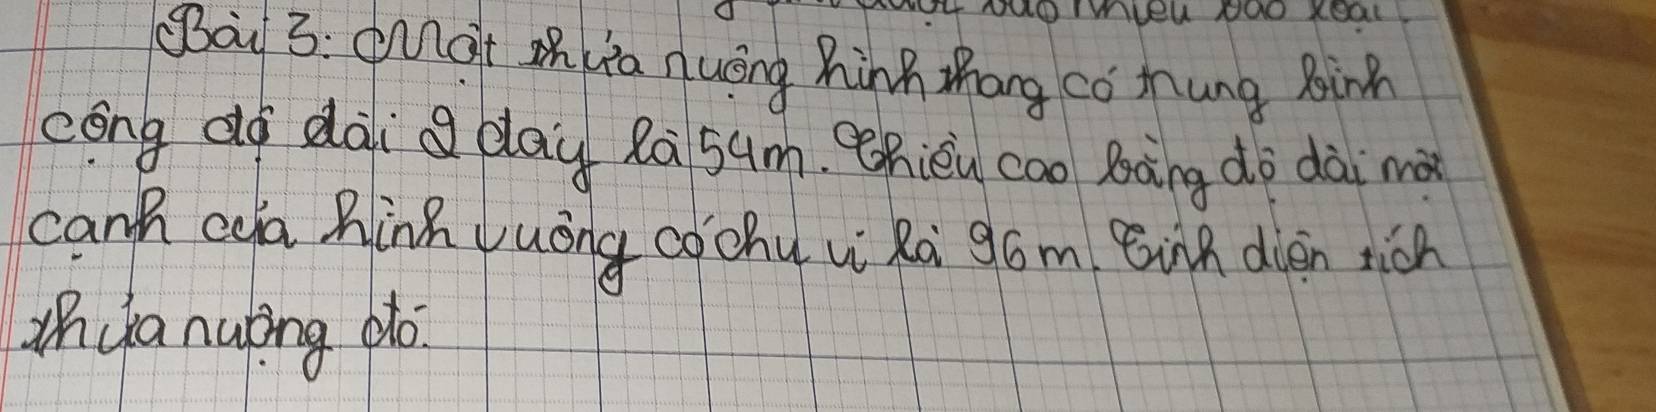 bao nhiêu bao loại.
Bài 3: Một thửa ruộng hình thang có trung bình
cộng độ dài 2 đáy là 54m. Chiều cao bằng độ dài một
cạnh của hình vuông có chu vi là 96m. Tính diện tích
thửa ruộng đó.